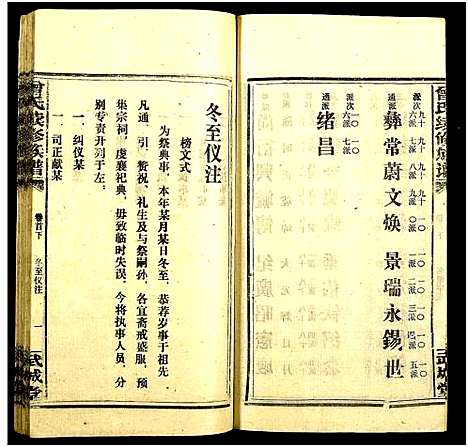 曾氏续修族谱
派次 六派 七派 八派 九十派 一〇派 二派 三派 四派 五派
彝常蔚文焕 景瑞永锡世
通派
派次 一〇六派 一〇七派
绪昌
通派
武城堂
冬至仪注
榜文式
为祭典事：本年某月某日冬至，恭荐岁事于祖先
凡通、引、赞祝、礼生及与祭嗣孙，各宜斋戒盛服，预
集宗祠，虔襄祀典，毋致临时失误，今将执事人员，分
别专责开列于左。
一：纠仪某
一：司正献某
曾氏续修族谱
卷首下
冬至仪注
一
武城堂